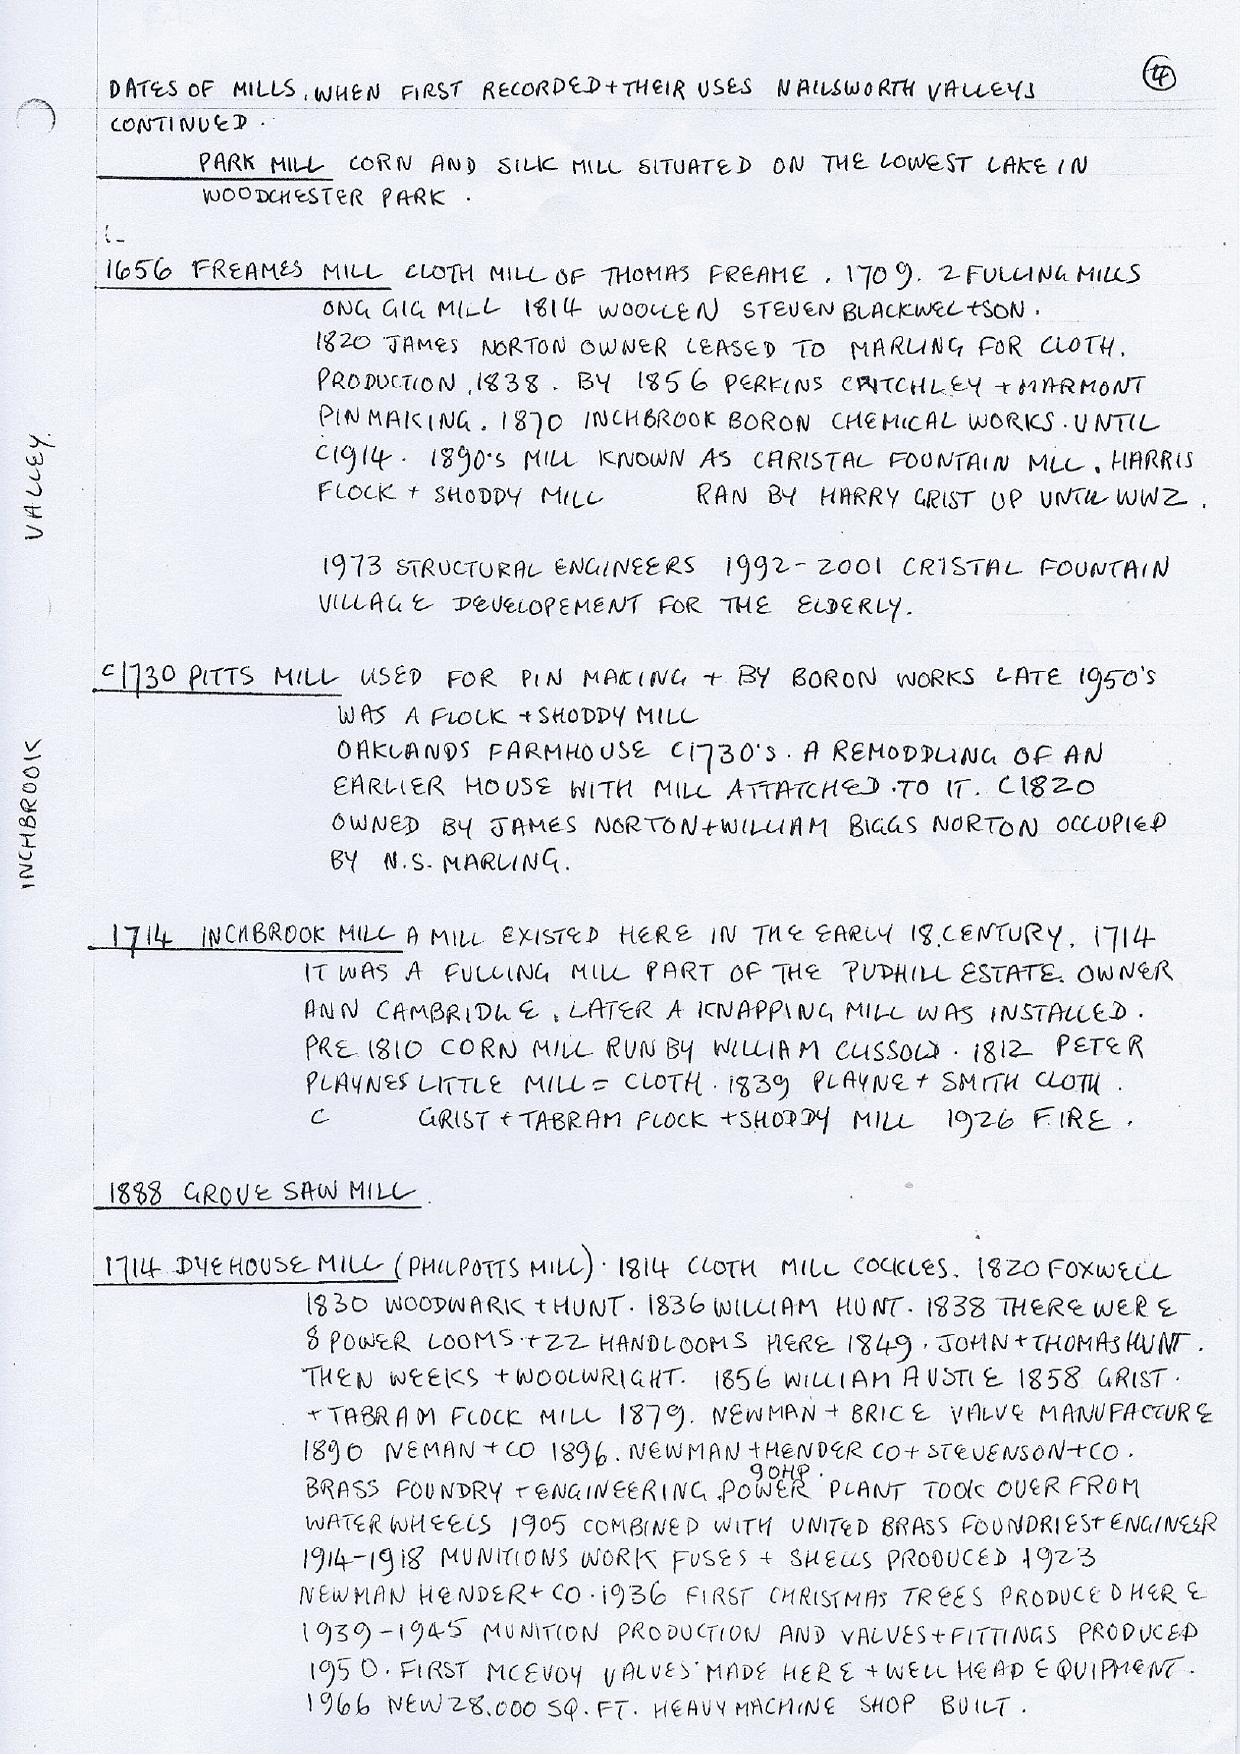 4
DATES OF MILLS. WHEN FIRST RECORDED + THEIR USES NAILSWORTH VALLEYS
CONTINUED.
PARK MILL CORN AND SILK MILL SITUATED ON THE LOWEST LAKE IN
WOODCHESTER PARK.
1656 FREAMES MILL CLOTH MILL OF THOMAS FREAME. 1709. 2 FULLING MILLS
ONG GIG MILL 1814 WOOLLEN STEVEN BLACKWEL + SON.
1820 JAMES NORTON OWNER LEASED TO MARLING FOR CLOTH.
PRODUCTION. 1838. BY 1856 PERKINS CRITCHLEY + MARMONT
PIN MAKING. 1870 INCHBROOK BORON CHEMICAL WORKS. UNTIL
C1914. 1890'S MILL KNOWN AS CARISTAL FOUNTAIN MLL. HARRIS
FLOCK + SHODDY MILL RAN BY HARRY GRIST UP UNTIL WW2.
1973 STRUCTURAL ENGINEERS 1992-2001 CRISTAL FOUNTAIN
VILLAGE DEVELOPEMENT FOR THE ELDERLY.
C1730 PITTS MILL USED FOR PIN MAKING + BY BORON WORKS LATE 1950'S
WAS A FLOCK + SHODDY MILL
OAKLANDS FARMHOUSE C1730'S. A REMODDLING OF AN
EARLIER HOUSE WITH MILL ATTATCHED. TO IT. C1820
OWNED BY JAMES NORTON + WILLIAM BIGGS NORTON OCCUPIED
BY N.S. MARLING.
1714 INCHBROOK MILL A MILL EXISTED HERE IN THE EARLY 18.CENTURY. 1714
IT WAS A FULLING MILL PART OF THE PUDHILL ESTATE. OWNER
ANN CAMBRIDGE. LATER A KNAPPING MILL WAS INSTALLED.
PRE 1810 CORN MILL RUN BY WILLIAM CLISSOLD. 1812 PETER
PLAYNES LITTLE MILL = CLOTH. 1839 PLAYNE + SMITH CLOTH.
C GRIST + TABRAM FLOCK + SHODDY MILL 1926 FIRE.
1888 GROVE SAW MILL.
1714 DYEHOUSE MILL (PHILPOTTS MILL). 1814 CLOTH MILL COCKLES. 1820 FOXWELL
1830 WOODWARK + HUNT. 1836 WILLIAM HUNT. 1838 THERE WERE
8 POWER LOOMS. + 22 HANDLOOMS HERE 1849. JOHN + THOMAS HUNT.
THEN WEEKS + WOOLWRIGHT. 1856 WILLIAM AUSTIE 1858 GRIST.
+ TABRAM FLOCK MILL 1879. NEWMAN + BRICE VALVE MANUFACTURE
1890 NEMAN + CO 1896. NEWMAN + HENDER CO + STEVENSON + CO.
90HP.
BRASS FOUNDRY + ENGINEERING. POWER PLANT TOOK OVER FROM
WATER WHEELS 1905 COMBINED WITH UNITED BRASS FOUNDRIES + ENGINEER
1914-1918 MUNITIONS WORK FUSES + SHELLS PRODUCED 1923
NEWMAN HENDER + CO. 1936 FIRST CHRISTMAS TREES PRODUCED HERE
1939-1945 MUNITION PRODUCTION AND VALVES + FITTINGS PRODUCED
1950. FIRST MCEVOY VALVES MADE HERE + WELL HEAD EQUIPMENT.
1966 NEW 28.000 SQ. FT. HEAVY MACHINE SHOP BUILT.
INCHBROOK VALLEY.